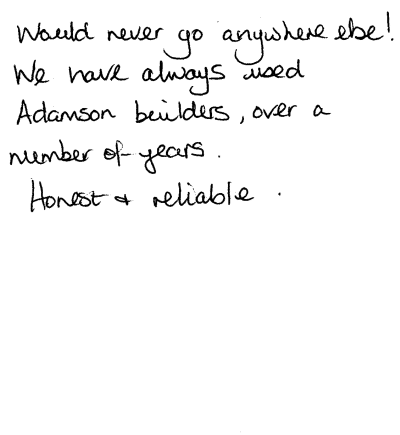 Would never go anywhere else!
We have always used
Adamson builders, over a
number of years.
Honest + reliable.